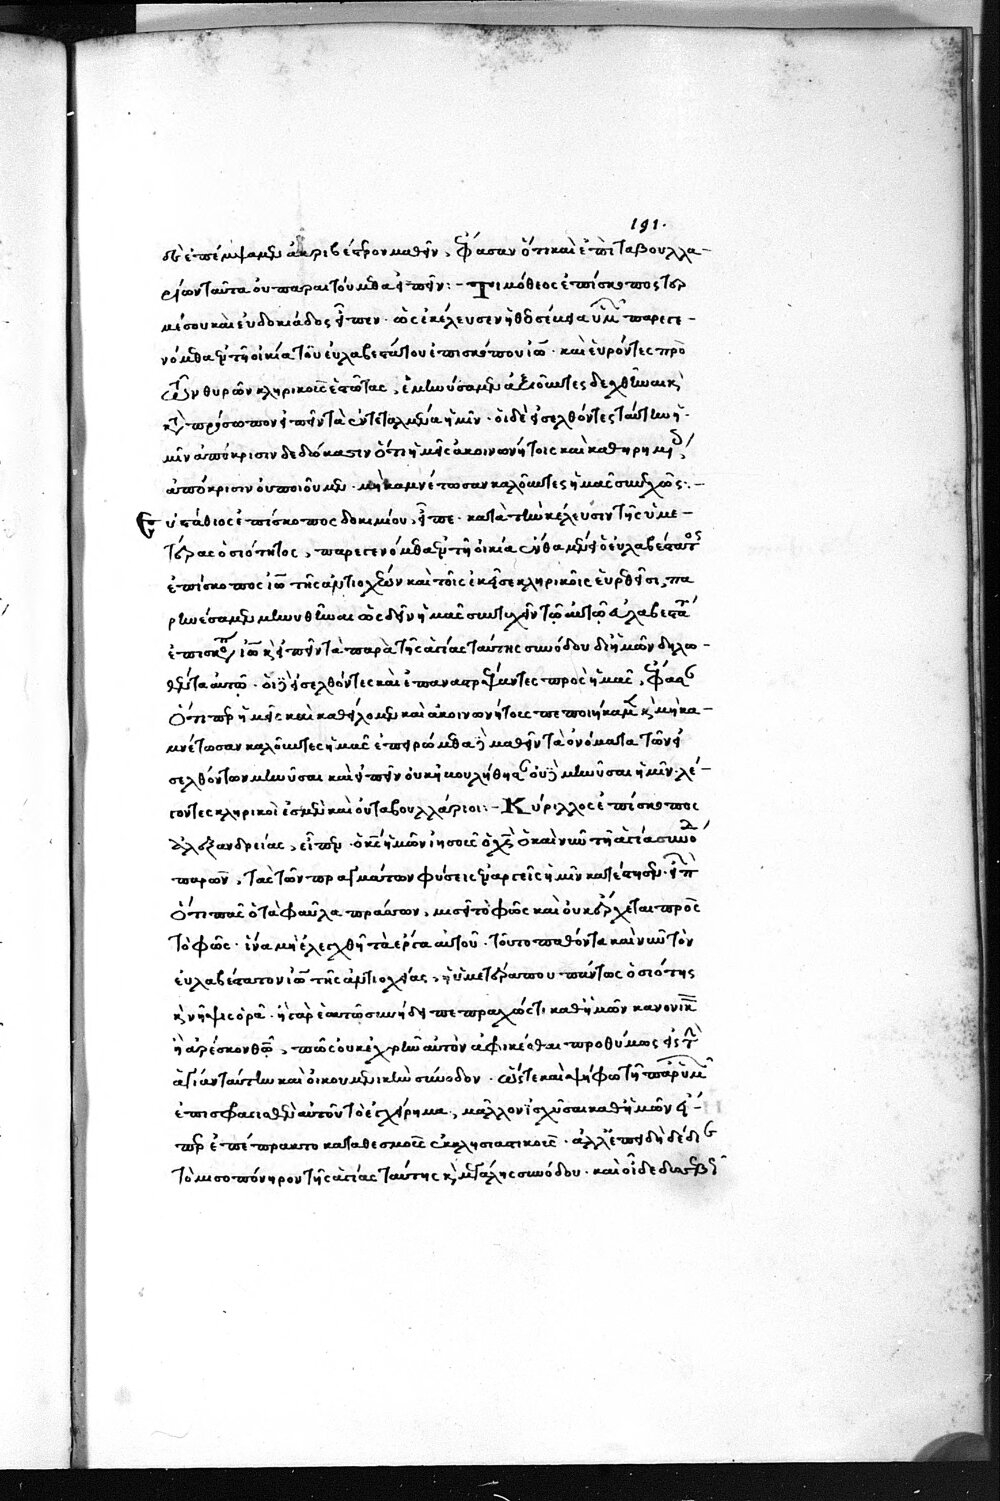 191.
δὲ ἐπέμψαμεν ἀκριβέστερον μαθεῖν, ἔφασαν ὅτι καὶ ἐπὶ ταβουλλα-
ρίων ταῦτα οὐ παραιτούμεθα εἰπεῖν :- Τιμόθεος ἐπίσκοπος τερ
μέσου καὶ εὐδοκιάδος εἶπεν · ὡς ἐκέλευσεν ἡ θεοσέβεια ὑμῶν παρεγε-
νόμεθα ἐν τῇ οἰκίᾳ τοῦ εὐλαβεστάτου ἐπισκόπου ἰω · καὶ εὑρόντες πρὸ
τῶν θυρῶν κληρικοὺς ἑστῶτας, ἐμηνύσαμεν ἀξιοῦντες δεχθῆναι κ
κτ πρόσωπον εἰπεῖν τὰ ἐντεταλμένα ἡμῖν · οἱ δὲ εἰσελθόντες ταύτην ἡ-
μῖν ἀπόκρισιν δεδώκασιν ὅτι ἡμεῖς ἀκοινωνήτοις καὶ καθηρημέ
ἀπόκρισιν οὐ ποιοῦμεν · μὴ καμνέτωσαν καλοῦντες ἡμᾶς συνεχῶς · -
Εὐστάθιος ἐπίσκοπος δοκιμίου, εἶπε · κατὰ τὴν κέλευσιν τῆς ὑμε-
τέρας ὁσιότητος, παρεγενόμεθα ἐν τῇ οἰκίᾳ ἔνθα μένει ὁ εὐλαβέστατ
ἐπίσκοπος ἰω τῆς ἀντιοχέων καὶ τοῖς ἐκεῖσε κληρικοῖς εὑρεθεῖσι, πα
ρῃνέσαμεν μηνυθῆναι ὡς δεῖν ἡμᾶς συντυχεῖν τῷ αὐτῷ εὐλαβεστά
ἐπισκο ἰω κ εἰπεῖν τὰ παρὰ τῆς ἁγίας ταύτης συνόδου δι ἡμῶν δηλω-
θέντα αὐτῷ · οἱ δὲ εἰσελθόντες καὶ ἐπαναστρέψαντες πρὸς ἡμᾶς, ἔφασ
ὅτι περ ἡμεῖς καὶ καθείλομεν καὶ ἀκοινωνήτοις πεποιήκαμ κ μὴ κα-
μνέτωσαν καλοῦντες ἡμᾶς ἐπειρώμεθα δὲ μαθεῖν τὰ ὀνόματα τῶν εἰ
σελθόντων μηνῦσαι καὶ εἰπεῖν οὐκ ἠβουλήθησ οὐδὲ μηνῦσαι ἡμῖν · λέ-
γοντες κληρικοὶ ἐσμὲν καὶ οὐ ταβουλλάριοι :- Κύριλλος ἐπίσκοπος
ἀλεξανδρείας, εἶπεν · ὁ κς ἡμῶν ἰησοῦς ὁ χς ὁ καὶ νῦν τῇ ἁγίᾳ συνό
παρών, τὰς τῶν πραγμάτων φύσεις ἐναργεῖς ἡμῖν κατέστησεν · εἰπ
ὅτι πᾶς ὁ τὰ φαῦλα πράσσων, μισεῖ τὸ φῶς καὶ οὐκ ἔρχεται πρὸς
τὸ φῶς · ἵνα μὴ ἐλεγχθῇ τὰ ἔργα αὐτοῦ · τοῦτο παθόντα καὶ νῦν τὸν
εὐλαβέστατον ἰω τῆς ἀντιοχείας, ἡ ὑμετέρα που πάντως ὁσιότης
κ νήψις ὁρᾷ · ἢ γὰρ ἑαυτῷ συνῄδει πεπραχώς τι καθ ἡμῶν κανονικ
ἢ ἀρέσκον θῷ, πῶς οὐκ ἐχρῆν αὐτὸν ἀφικέσθαι προθύμως εἰς τ
ἁγίαν ταύτην καὶ οἰκουμενικὴν σύνοδον · ὥστε καὶ ψήφῳ τῇ παρ ὑμ
ἐπισφαγισθὲν αὐτοῦ τὸ ἐγχείρημα, μᾶλλον ἰσχῦσαι καθ ἡμῶν εἴ-
περ ἐπέπρακτο κατὰ θεσμοὺς ἐκκλησιαστικοὺς · ἀλλ ἐπειδὴ δέδι
τὸ μισοπόνηρον τῆς ἁγίας ταύτης κ μεγάλης συνόδου · καὶ οἶδε δυσσεβ